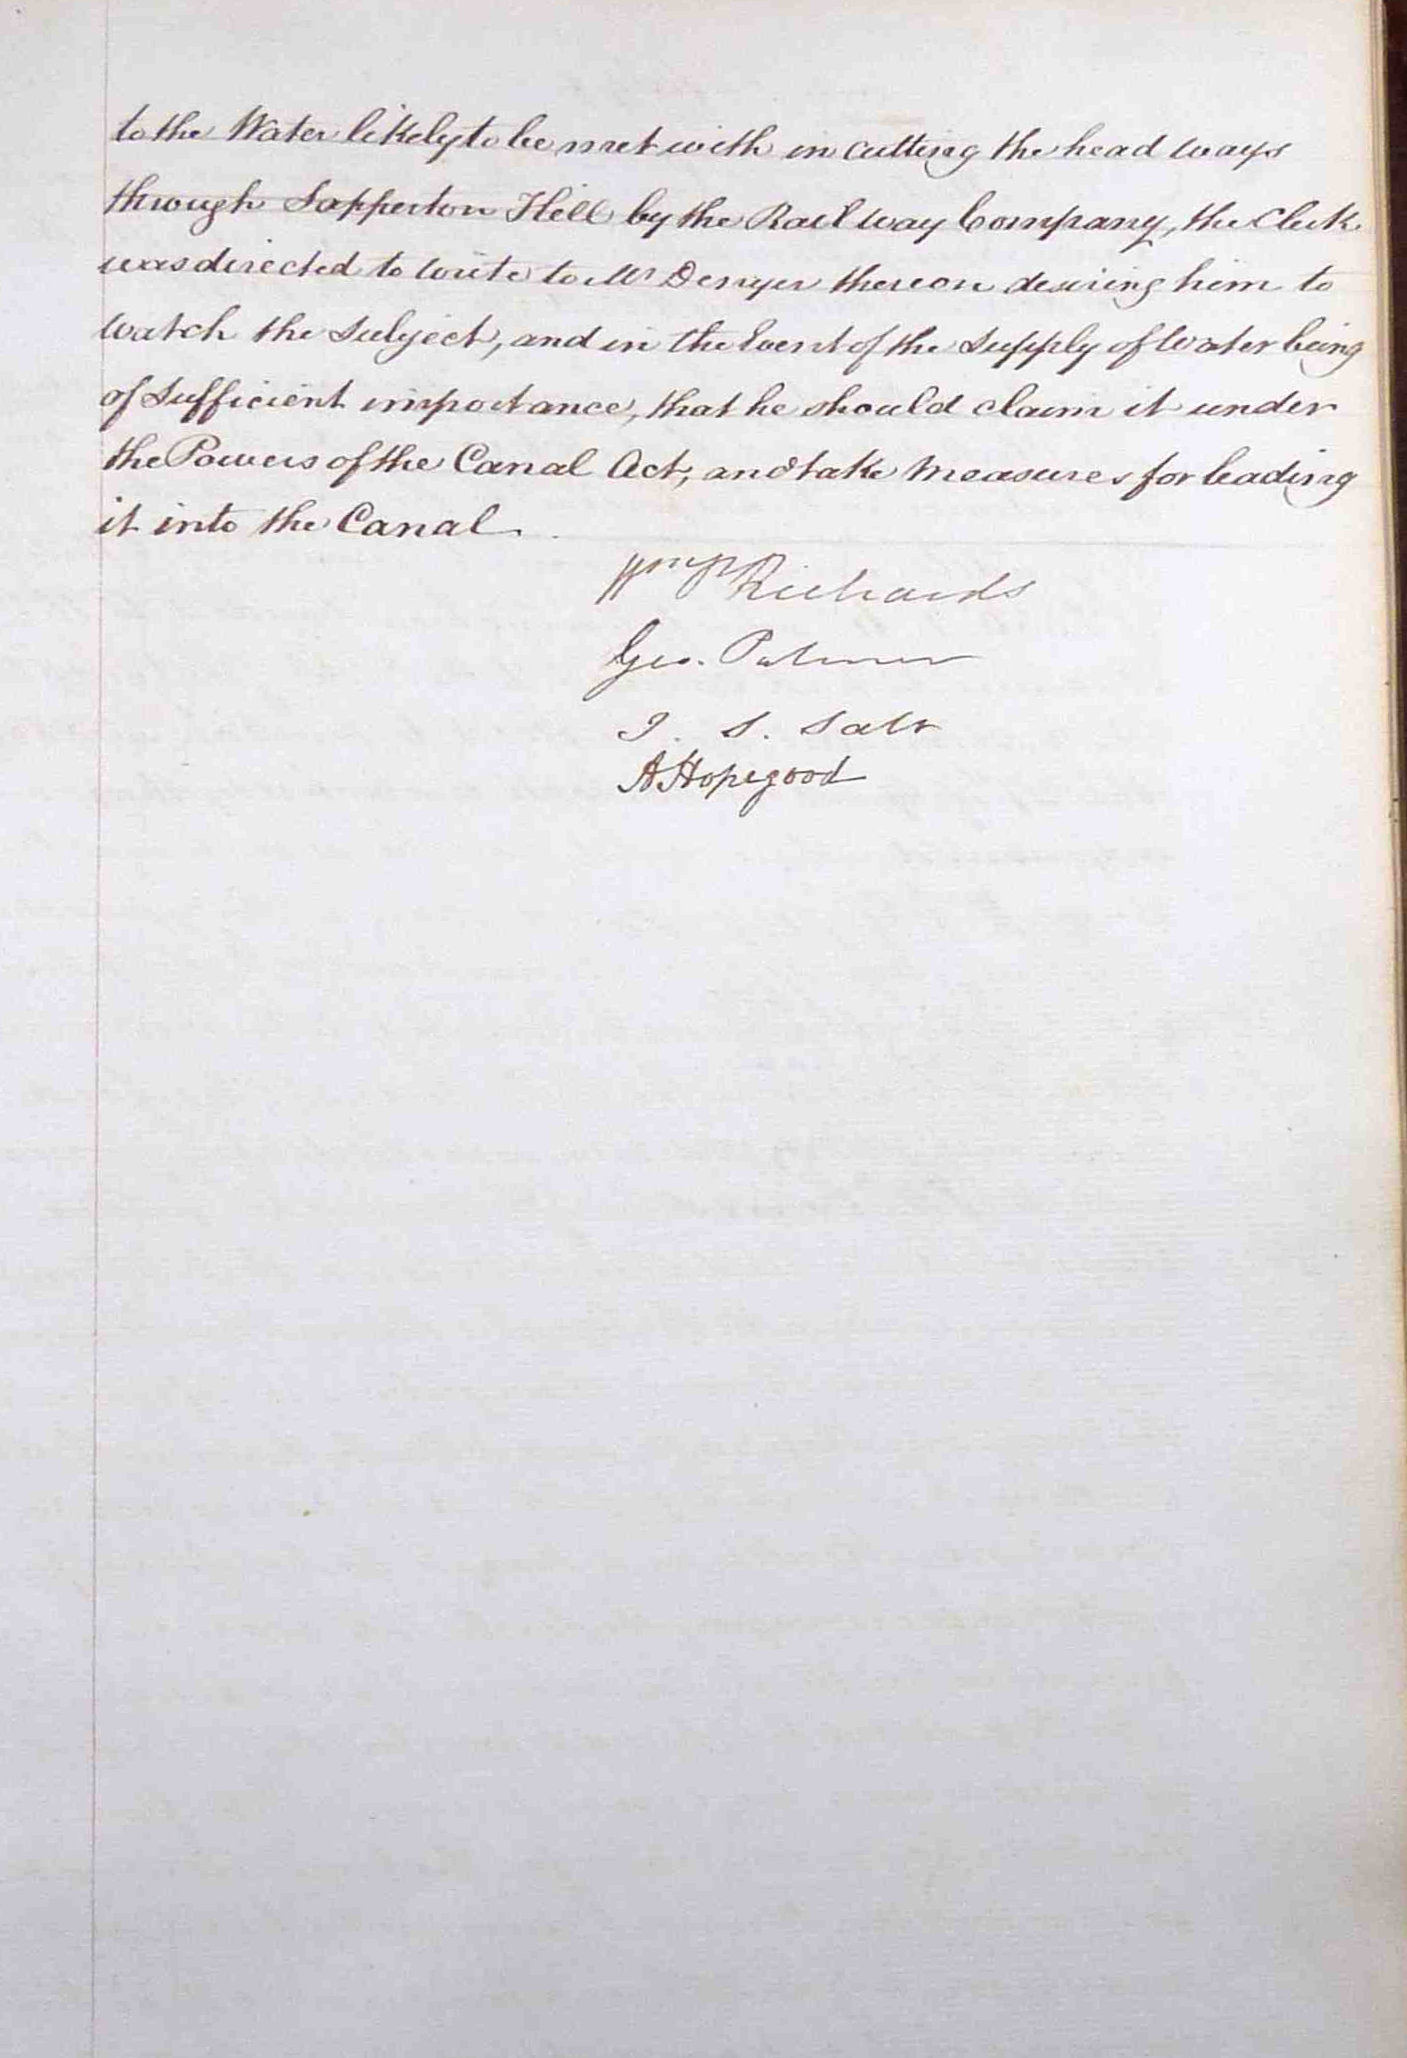 to the Water likely to be met with in cutting the head ways
through Sapperton Hill by the Railway Company, the Clerk
was directed to write to Mr Denyer thereon desiring him to
watch the subject, and in the Event of the Supply of Water being
of sufficient importance, that he should claim it under
the Powers of the Canal Act, and take Measures for leading
it into the Canal.
Richards
Geo. Palmer
J. S. Salt
A Hopegood